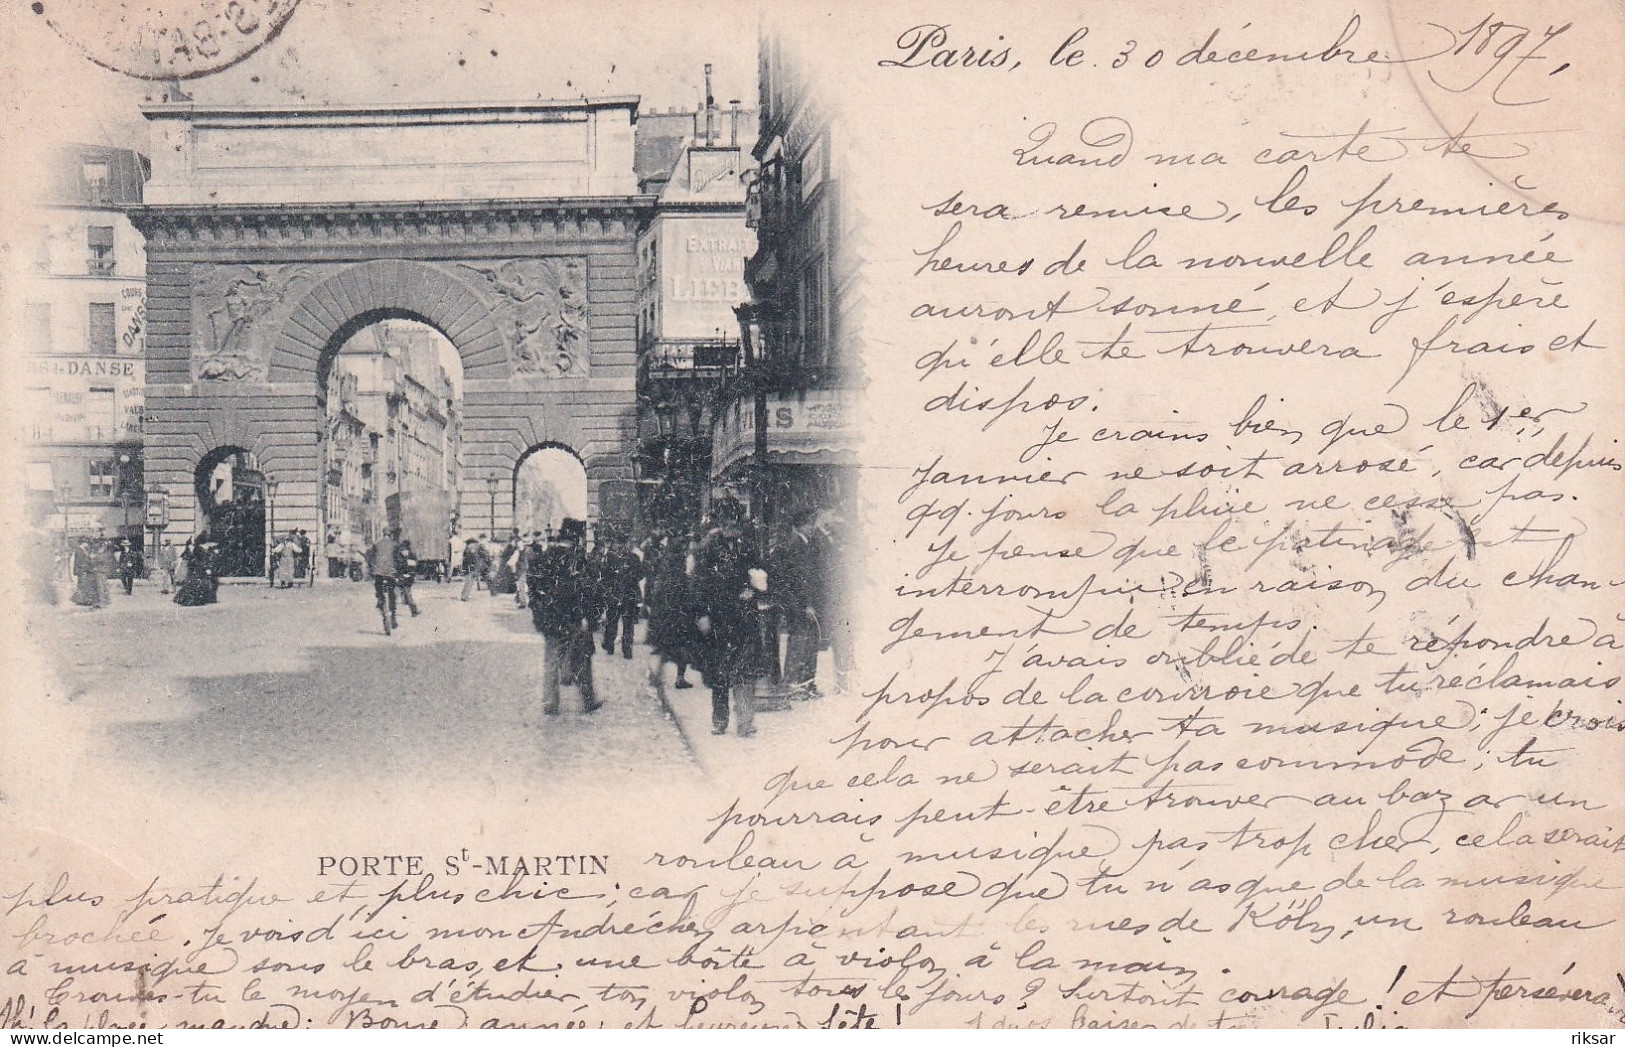 Paris, le 30 décembre 1897.
Quand ma carte te
sera remise, les premières
heures de la nouvelle année
auront sonné, et j'espère
qu'elle te trouvera frais et
dispos.
Je crains bien que le 1er
Janvier ne soit arrosé, car depuis
qq. jours la pluie ne cesse pas.
Je pense que le patinage est
interrompu en raison du chan-
gement de temps.
J'avais oublié de te répondre à
propos de la courroie que tu réclamais
pour attacher ta musique; je crois
que cela ne serait pas commode; tu
pourrais peut-être trouver au bazar un
rouleau à musique, pas trop cher, cela serait
plus pratique et plus chic; car je suppose que tu n'as que de la musique
brochée. Je vois d'ici mon André chéri arpentant les rues de Köln, un rouleau
à musique sous le bras, et une boîte à violon à la main.
Trouves-tu le moyen d'étudier ton violon tous les jours? Surtout courage! et persévérance
Ah! la place manque: Bonne année et heureuse fête! Julia
PORTE St-MARTIN
EXTRAIT
VIANDE
LIEBIG
COURS
DE
DANSE
RS de DANSE
riksar